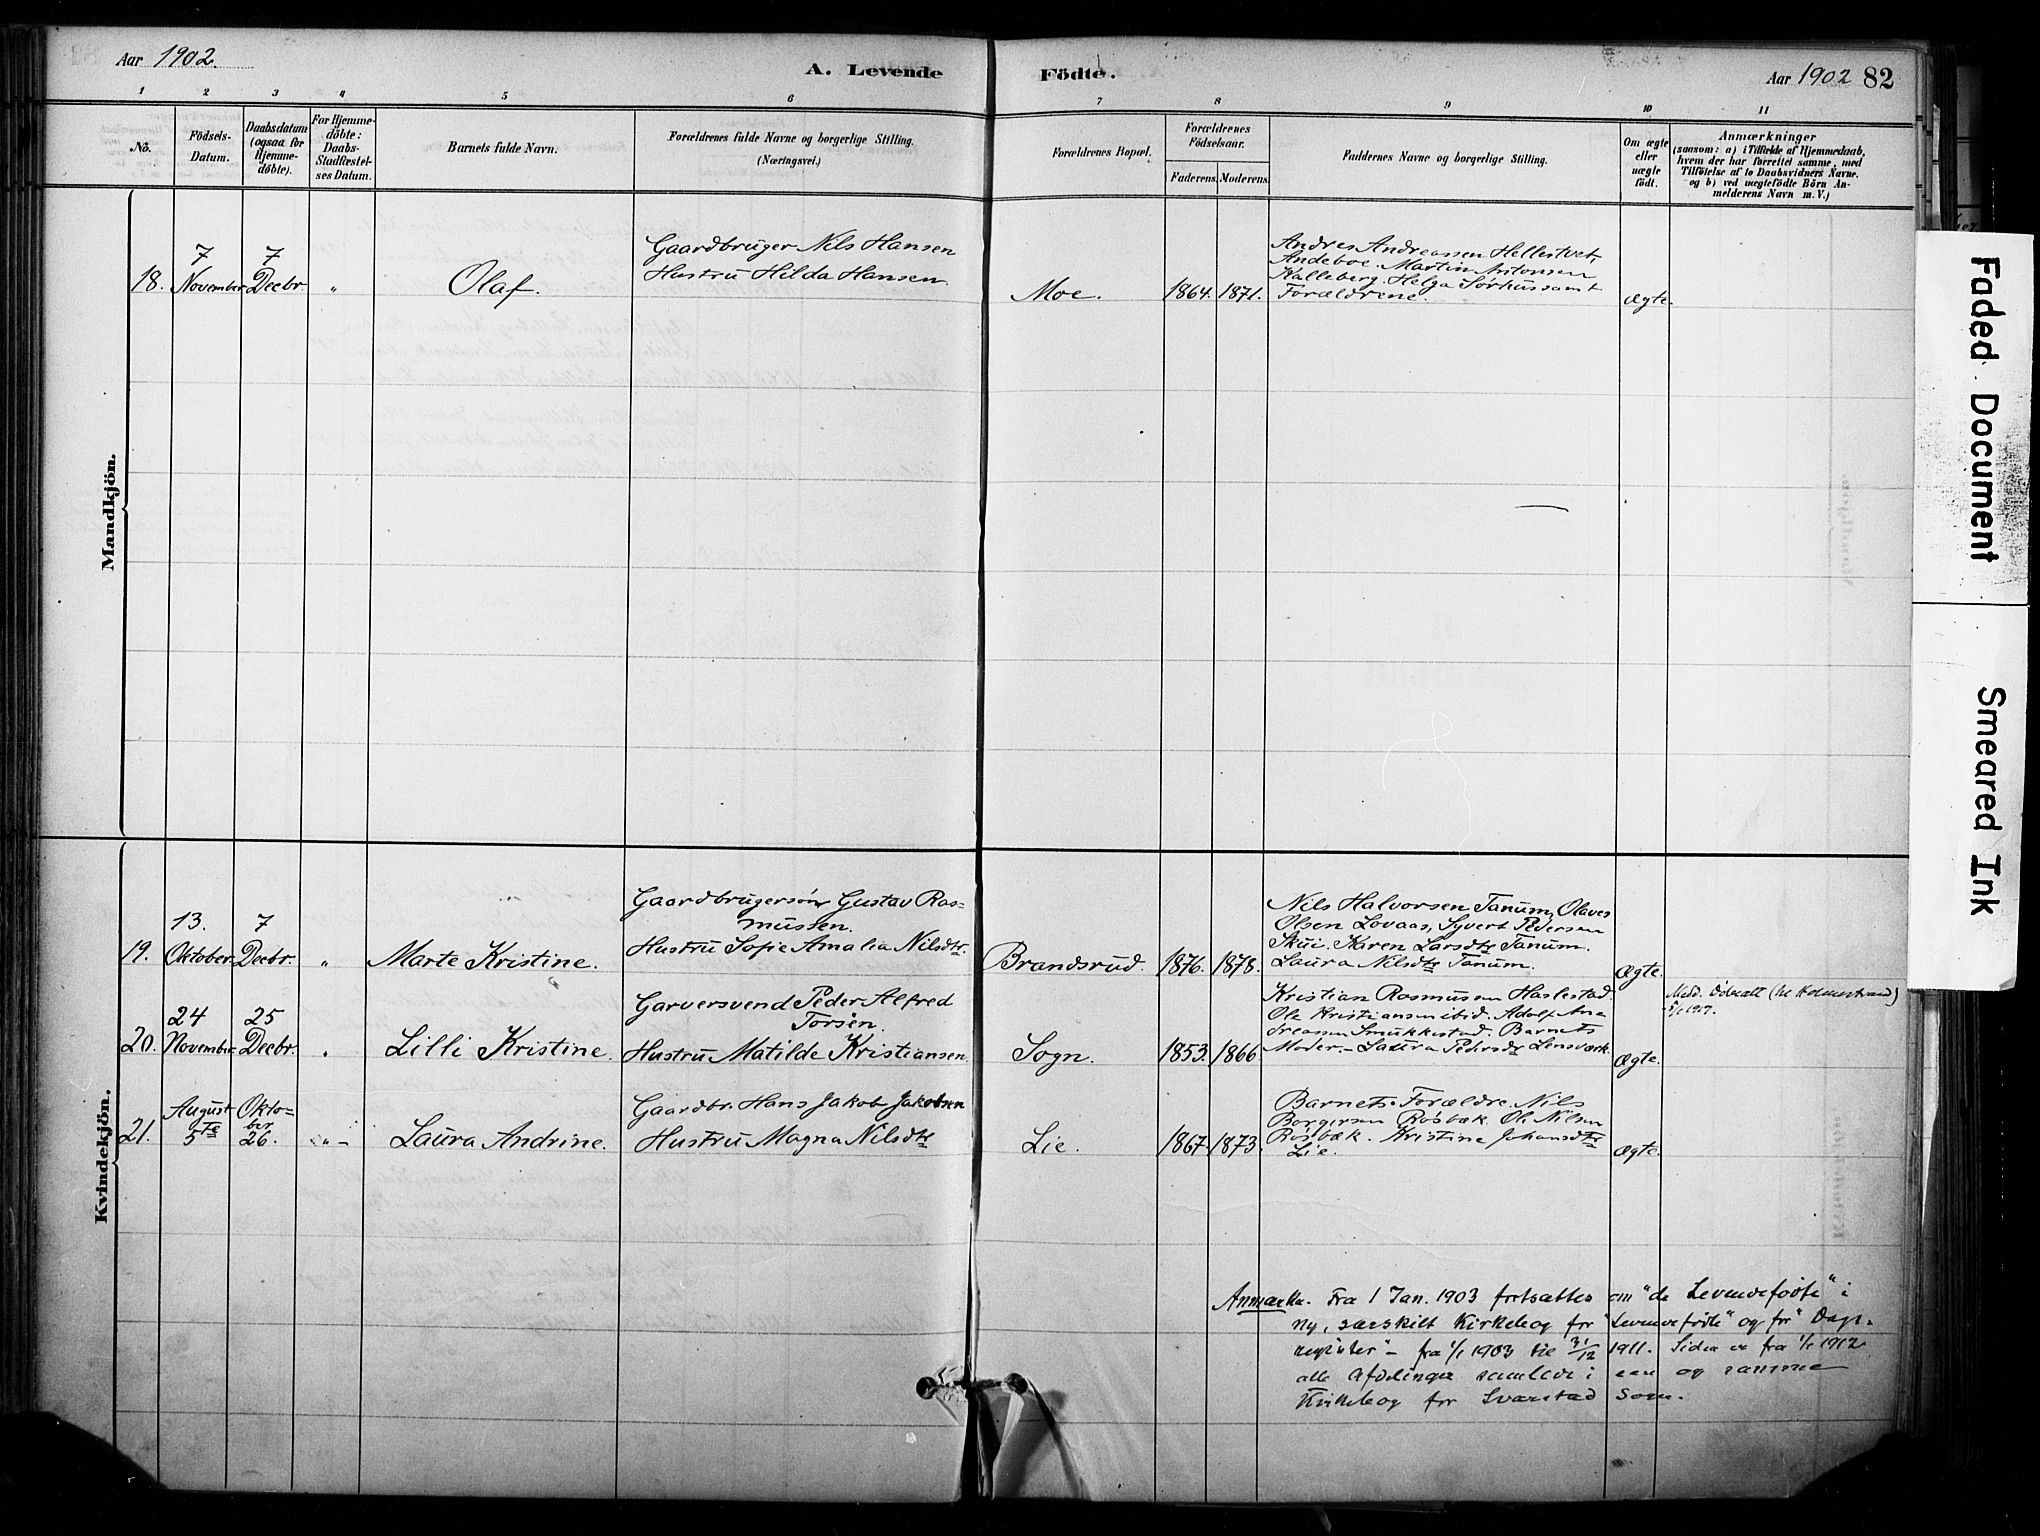 Aar 1902.
A. Levende
Födte.
Aar 1902 82
1 2 3 4 5 6 7 8 9 10 11
No.
Födsels-
Datum.
Daabsdatum
(ogsaa for
Hjemme-
döbte).
For Hjemme-
döbte:
Daabs-
Stadfæstel-
ses Datum.
Barnets fulde Navn.
Forældrenes fulde Navne og borgerlige Stilling.
(Næringsvei.)
Forældrenes Bopæl.
Forældrenes
Födselsaar.
Faderens. Moderens.
Faddernes Navne og borgerlige Stilling.
Om ægte
eller
uægte
födt.
Anmærkninger
(saasom: a) i Tilfælde af Hjemmedaab,
hvem der har forrettet samme, med
Tilföielse af to Daabsvidners Navne,
og b) ved uægtefödte Börn An-
melderens Navn m.V.)
Mandkjön.
18.
7
November
7
Decbr
"
Olaf.
Gaardbruger Nils Hansen
Hustru Hilda Hansen
Moe.
1864. 1871.
Andres Andreassen Hellestvet,
Andeboe. Martin Antonsen
Kalleberg. Helga Sørhus samt
Forældrene.
Ægte.
Kvindekjön.
19.
13.
Oktober
7
Decbr.
"
Marte Kristine.
Gaardbrugersøn Gustav Ras=
mussen.
Hustru Sofie Amalia Nilsdtr.
Brandsrud.
1876. 1878.
Nils Halvorsen Tanum, Olaves
Olsen Lovaas, Syvert Pedersen
Skui. Karen Larsdtr Tanum.
Laura Nilsdtr Tanum.
Ægte.
20.
24
November
25
Decbr.
"
Lilli Kristine.
Garversvend Peder Alfred
Torsen.
Hustru Matilde Kristiansen
Sogn.
1853. 1866
Kristian Rasmussen Haslestad.
Ole Kristiansen ibid. Adolf An-
dreassen Smukkestad. Barnets
Moder. – Laura Pedersdtr Lensværk.
Ægte.
1917.
21.
August
5te
Okto=
ber
26.
Laura Andrine.
Gaardbr. Hans Jakob Jakobsen
Hustru Magna Nilsdtr
Lie.
1867. 1873.
Barnets Forældre. Nils
Borgersen Røsbæk. Ole Nilsen
Røsbæk. Kristine Johansdtr
Lie.
Ægte.
Anmærkn. Fra 1 Jan. 1903 fortsættes om "de Levendefødte" i
ny, særskilt Kirkebog for "Levendefødte" og for "Dags-
register" – fra 1/1 1903 til 31/12 1911. Siden er fra 1/1 1912
alle Afdelinger samlede i een og samme
Kirkebog for Svarstad Sogn.
Faded Document
Smeared Ink